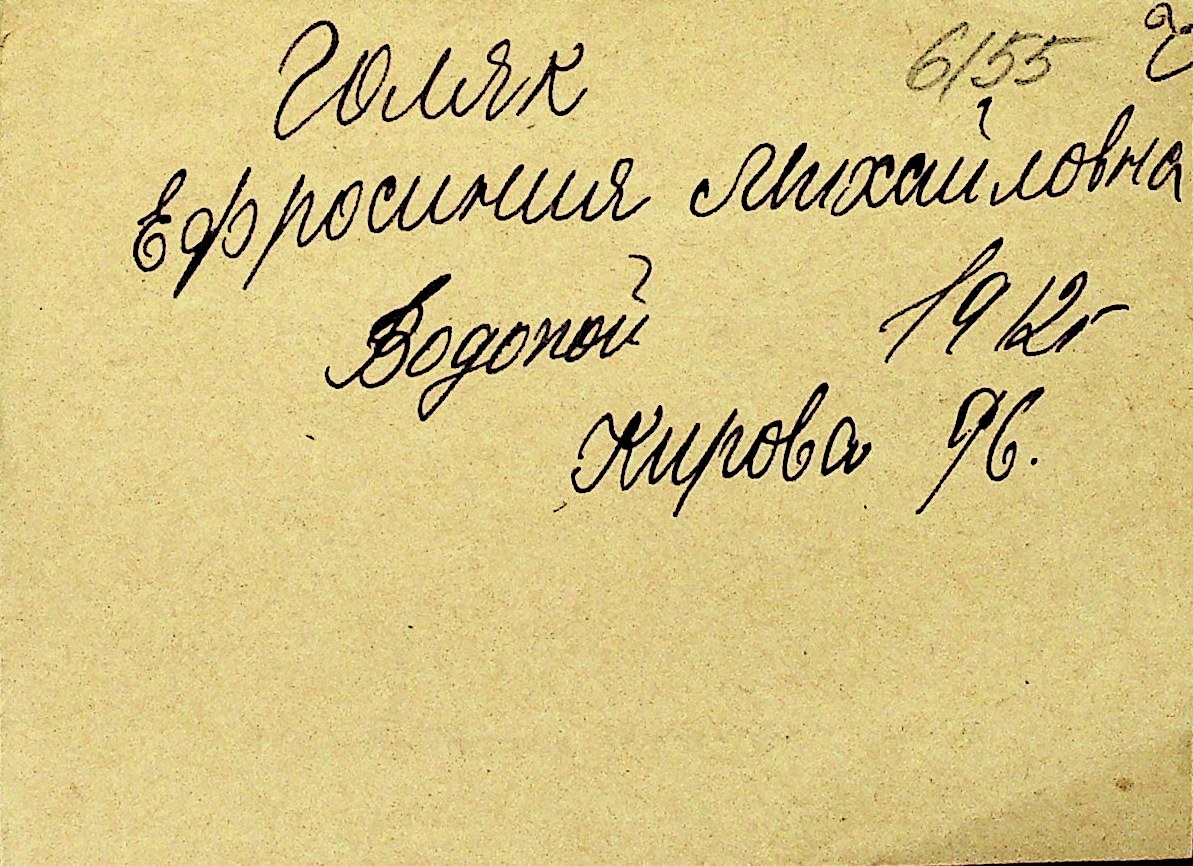 Голяк 6155
Ефросиния Михайловна
Водопой 1912г
Кирова 96.